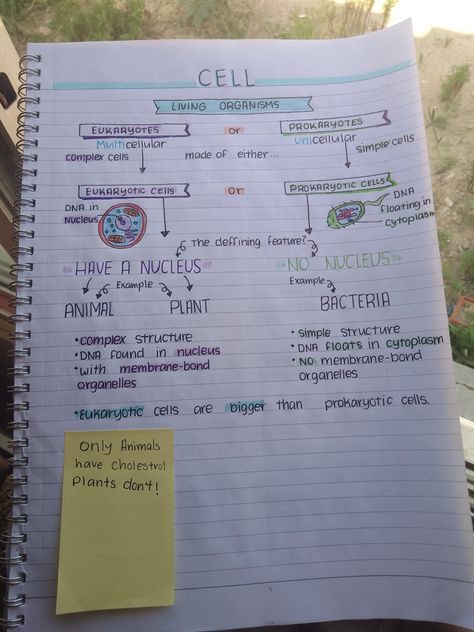 CELL
LIVING ORGANISMS
EUKARYOTES or PROKARYOTES
Multicellular unicellular
complex cells made of either... simple cells
EUKARYOTIC CELLS or PROKARYOTIC CELLS
DNA in
nucleus
DNA
floating in
cytoplasm
The deffining feature?
HAVE A NUCLEUS NO NUCLEUS
Example Example
ANIMAL PLANT BACTERIA
• complex structure
• DNA found in nucleus
• with membrane-bond
organelles
• simple structure
• DNA floats in cytoplasm
• NO membrane-bond
organelles
• Eukaryotic cells are bigger than prokaryotic cells.
Only Animals
have cholestrol
Plants don't!